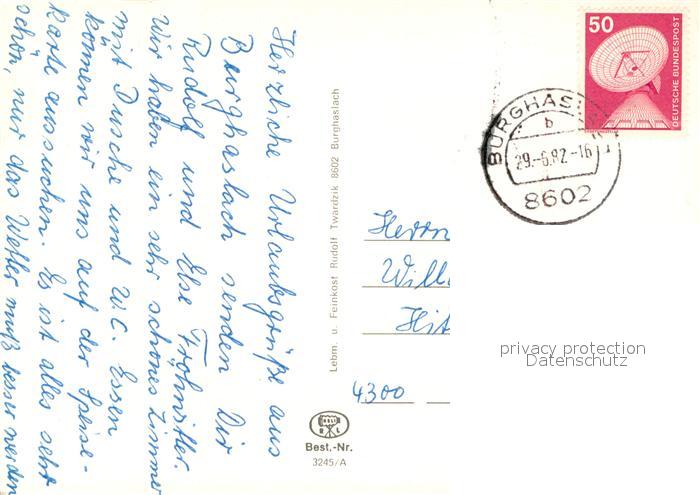 Herzliche Urlaubsgrüße aus
Burghaslach senden Dir
Rudolf und Else Fröhnstler.
Wir haben ein sehr schönes Zimmer
mit Dusche und W.C. Essen
können wir uns auf der Speise-
karte aussuchen. Es ist alles sehr
schön, nur das Wetter muß besser werden
Lebm. u. Feinkost Rudolf Twardzik 8602 Burghaslach
50
DEUTSCHE BUNDESPOST
BURGHASL
b
29.-6.82.-16
8602
Herrn
Will
Hit
4300
privacy protection
Datenschutz
Best.-Nr.
3245/A